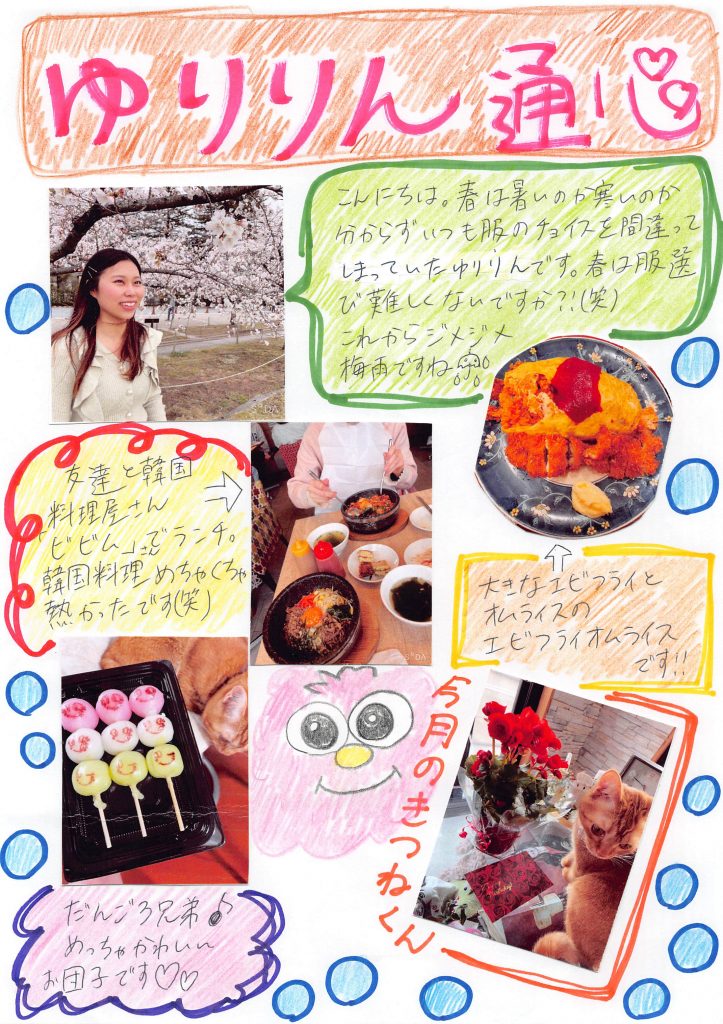 ゆりりん通心
こんにちは。春は暑いのか寒いのか
分からずいつも服のチョイスを間違って
しまっていたゆりりんです。春は服選
び難しくないですか?!(笑)
これからジメジメ
梅雨ですね
友達と韓国
料理屋さん
「ビビム」さんでランチ。
韓国料理めちゃくちゃ
熱かったです(笑)
大きなエビフライと
オムライスの
エビフライオムライス
です!!
今月のきつねくん
だんご3兄弟♪
めっちゃかわいい
お団子です♡♡